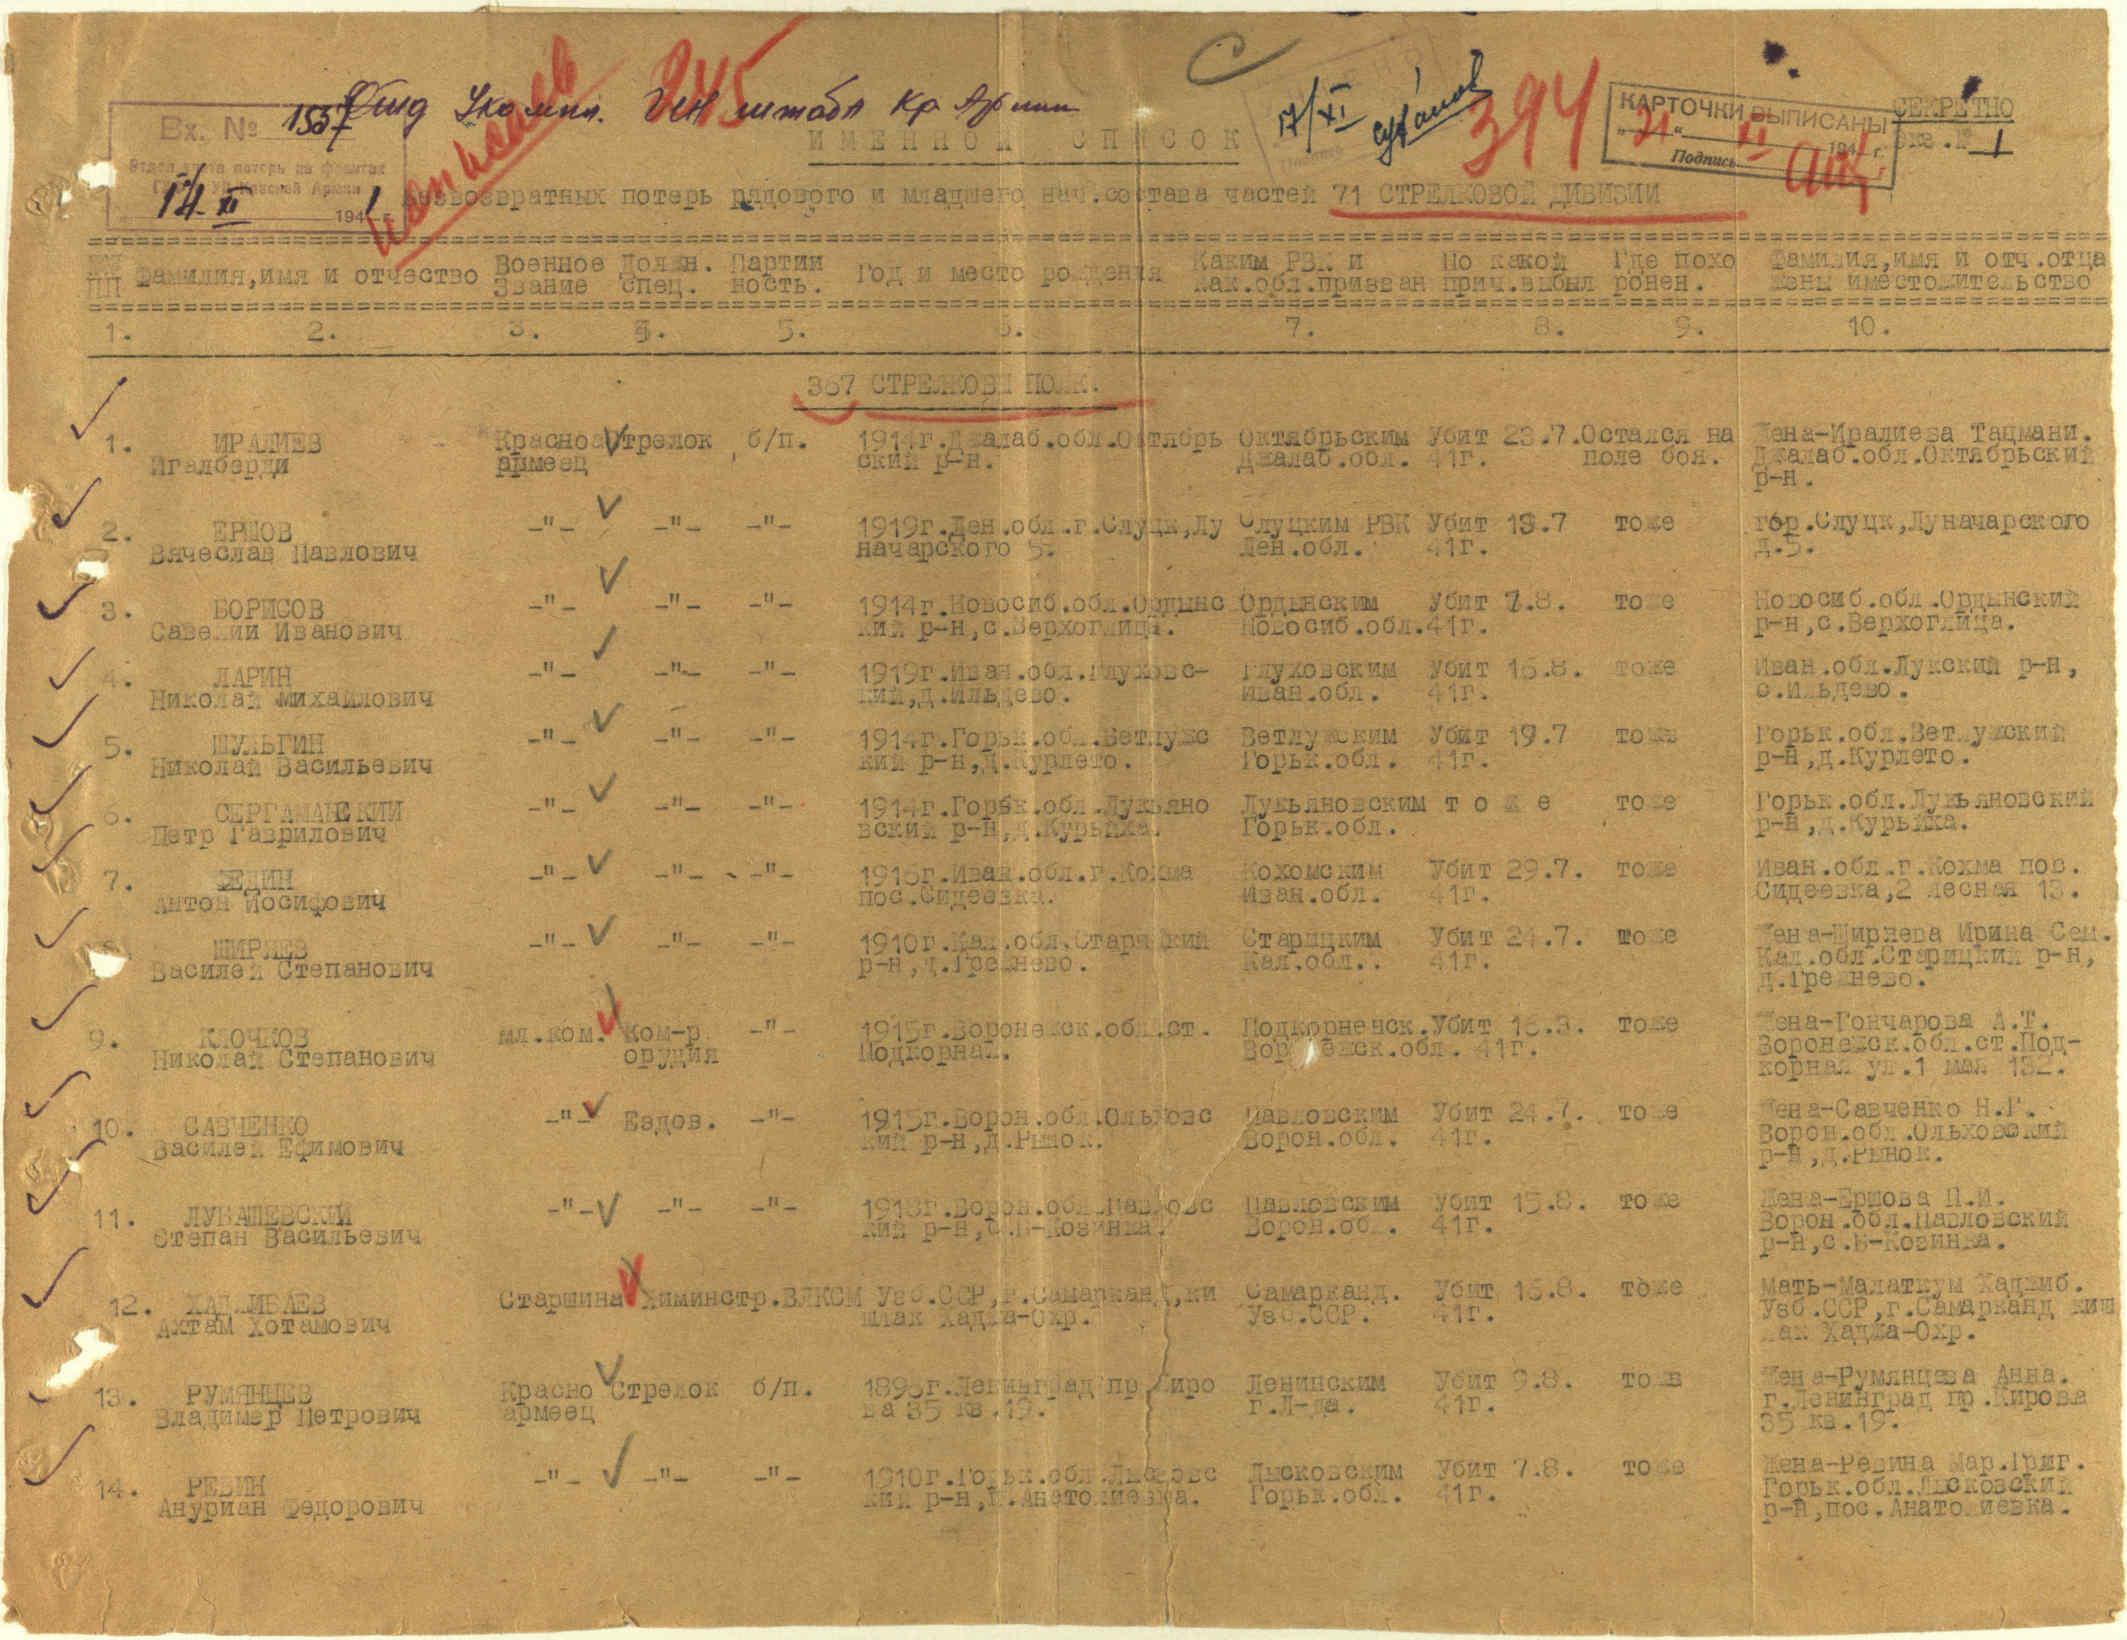 Вх. № 1557
Отдел учета потерь на фронтах
Красной Армии
14 XI 1941 г.
245
штаба Кр Армии
17/XI
394
КАРТОЧКИ ВЫПИСАНЫ
"21" II 194 г.
Подпись
СЕКРЕТНО
экз. № 1
ИМЕННОЙ СПИСОК
безвозвратных потерь рядового и младшего нач.состава частей 71 СТРЕЛКОВОЙ ДИВИЗИИ
ПП Фамилия,имя и отчество Военное Должн. Партий Год и место рождения Каким РВК и По какой Где похо Фамилия,имя и отч.отца
Звание спец. ность. как.обл.призван прич.выбыл ронен. жены иместожительство
1. 2. 3. 4. 5. 6. 7. 8. 9. 10.
367 СТРЕЛКОВЫ ПОЛК.
1. ИРАЛИЕВ Красноа Стрелок б/п. 1914г.Джалаб.обл.Октябрь Октябрьским Убит 23.7. Остался на Жена-Иралиева Тацмани.
Игалберди армеец ский р-н. Джалаб.обл. 41г. поле боя. Джалаб.обл.Октябрьский
р-н.
2. ЕРШОВ -"- -"- -"- 1919г.Лен.обл.г.Слуцк,Лу Слуцким РВК Убит 19.7 тоже гор.Слуцк,Луначарского
Вячеслав Павлович начарского 5. Лен.обл. 41г. д.5.
3. БОРИСОВ -"- -"- -"- 1914г.Новосиб.обл.Ордынс Ордынским Убит 7.8. тоже Новосиб.обл.Ордынский
Савелий Иванович кий р-н,с.Верхоглица. Новосиб.обл. 41г. р-н,с.Верхоглица.
4. ЛАРИН -"- -"- -"- 1919г.Иван.обл.Глуховс- Глуховским Убит 16.8. тоже Иван.обл.Лукский р-н,
Николай Михайлович кий,д.Ильдево. Иван.обл. 41г. с.Ильдево.
5. ШУЛЬГИН -"- -"- -"- 1914г.Горьк.обл.Ветлужс Ветлужским Убит 19.7 тоже Горьк.обл.Ветлужский
Николай Васильевич кий р-н,д.Курлето. Горьк.обл. 41г. р-н,д.Курлето.
6. СЕРГАМАНСКИЙ -"- -"- -"- 1914г.Горьк.обл.Лукьяно Лукьяновским т о ж е тоже Горьк.обл.Лукьяновский
Петр Гаврилович вский р-н,д.Курыйха. Горьк.обл. р-н,д.Курыйха.
7. ФЕДИН -"- -"- -"- 1916г.Иван.обл.г.Кохма Кохомским Убит 29.7. тоже Иван.обл.г.Кохма пос.
Антон Иосифович пос.Сидеевка. Иван.обл. 41г. Сидеевка,2 лесная 13.
8. ШИРЯЕВ -"- -"- -"- 1910г.Кал.обл.Старицкий Старицким Убит 24.7. тоже Жена-Ширяева Ирина Сем.
Василей Степанович р-н,д.Грешнево. Кал.обл.. 41г. Кал.обл.Старицкий р-н,
д.Грешнево.
9. КЛОЧКОВ мл.ком. Ком-р -"- 1915г.Воронежск.обл.ст. Подкорненск. Убит 16.8. тоже Жена-Гончарова А.Т.
Николай Степанович орудия Подкорная. Воронежск.обл. 41г. Воронежск.обл.ст.Под-
корная ул.1 мая 132.
10. САВЧЕНКО -"- Ездов. -"- 1915г.Ворон.обл.Ольховс Павловским Убит 24.7. тоже Жена-Савченко Н.Г.
Василей Ефимович кий р-н,д.Рынок. Ворон.обл. 41г. Ворон.обл.Ольховский
р-н,д.Рынок.
11. ЛУБАШЕВСКИЙ -"- -"- -"- 1918г.Ворон.обл.Павловс Павловским Убит 15.8. тоже Жена-Ершова П.И.
Степан Васильевич кий р-н,с.В-Козинка. Ворон.об. 41г. Ворон.обл.Павловский
р-н,с.В-Козинка.
12. ХАДЖИБАЕВ Старшина Химинстр. ВЛКСМ Узб.ССР,г.Самарканд,ки Самарканд. Убит 16.8. тоже Мать-Малаткум Хаджиб.
Ахтам Хотамович шлак Хаджа-Охр. Узб.ССР. 41г. Узб.ССР,г.Самарканд киш
лак Хаджа-Охр.
13. РУМЯНЦЕВ Красно Стрелок б/п. 1893г.Ленинград пр Киро Ленинским Убит 9.8. тоже Жена-Румянцева Анна.
Владимер Петрович армеец ва 35 кв.19. г.Л-да. 41г. г.Ленинград пр.Кирова
35 кв.19.
14. РЕВИН -"- -"- -"- 1910г.Горьк.обл.Лысковс Лысковским Убит 7.8. тоже Жена-Ревина Мар.Григ.
Ануриан Федорович кий р-н,п.Анатолиевка. Горьк.обл. 41г. Горьк.обл.Лысковский
р-н,пос.Анатолиевка.